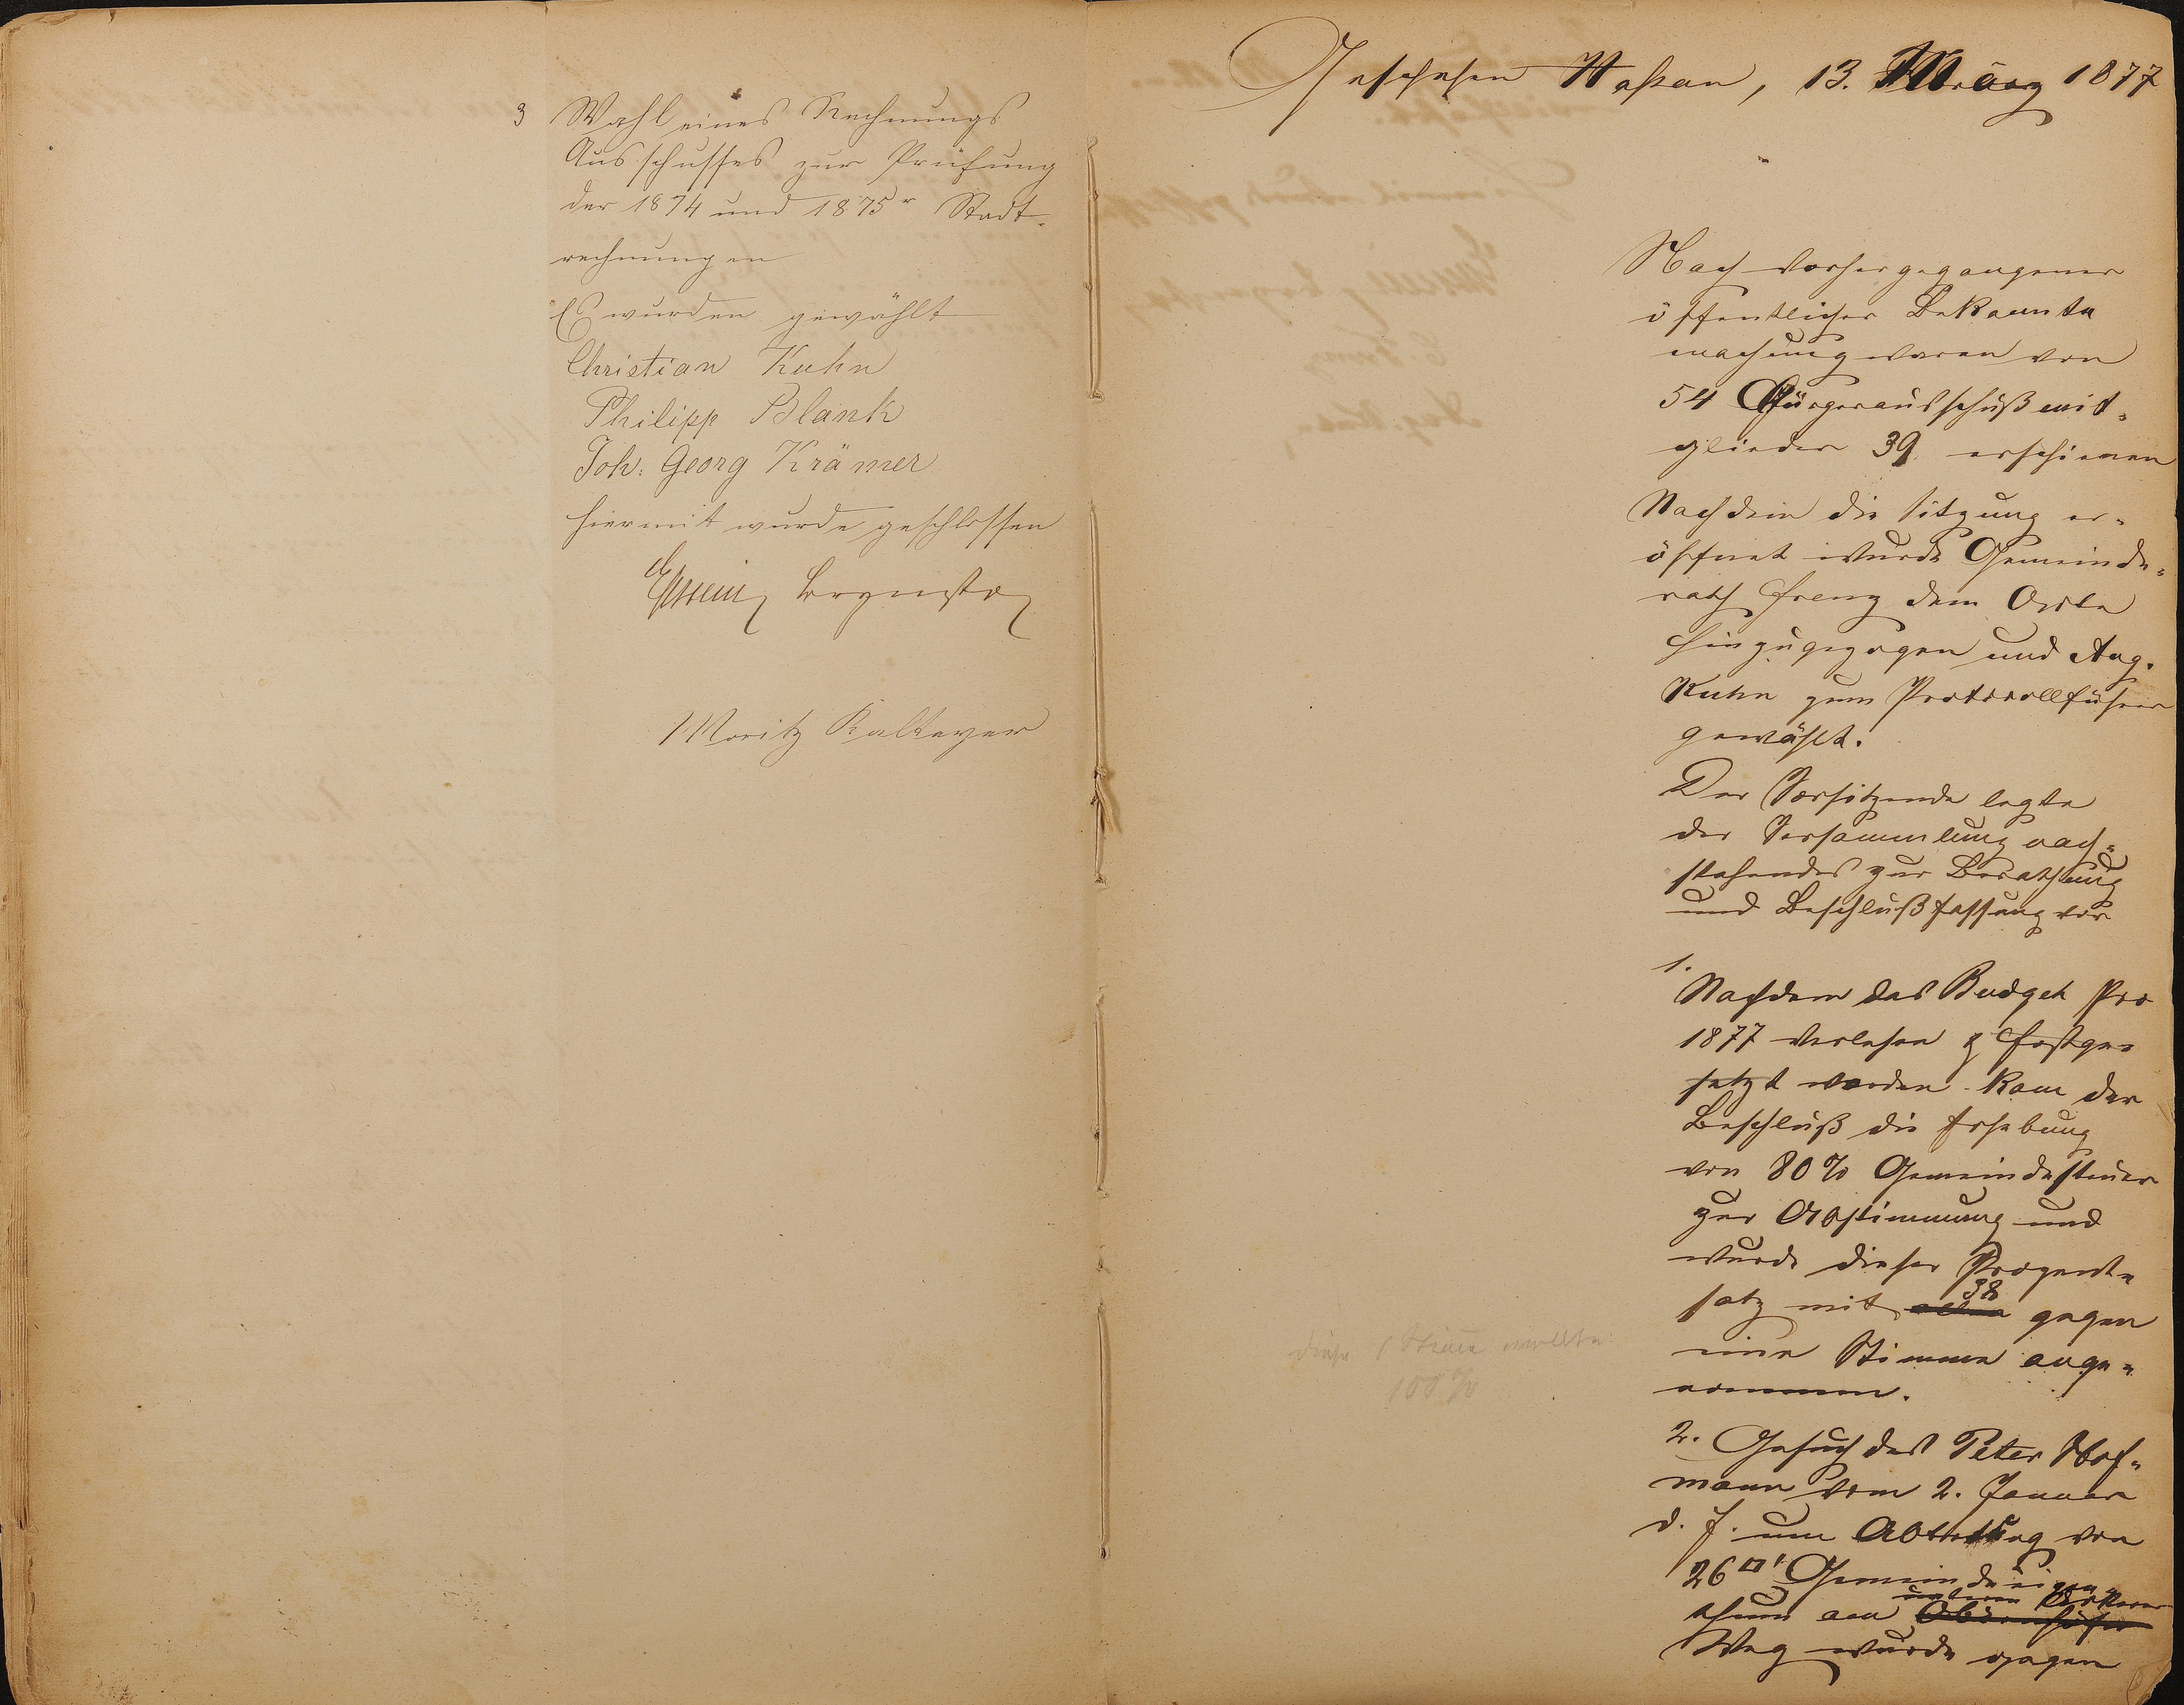 3 Wahl eines Rechnungs
Ausschusses zur Prüfung
der 1874 und 1875r Stadt-
rechnungen
Es wurden gewählt
Christian Kuhn
Philipp Blank
Joh. Georg Krämer
hiermit wurde geschlossen
Moritz Kalkeyer
Geschehen Nassau, 13. März 1877
Nach vorhergegangener
öffentlicher Bekannt-
machung waren von
54 Bürgerausschußmit-
glieder 39 erschienen
Nachdem die Sitzung er-
öffnet wurde Gemeinde-
rath dem Acte
hinzugezogen und Aug.
Kuhn zum Protocollführer
gewählt.
Der Vorsitzende legte
der Versammlung nach-
stehendes zur Berathung
und Beschlußfassung vor
1.
Nachdem das Budget pro
1877 verlesen & festge-
setzt worden kam der
Beschluß die Erhebung
von 80% Gemeindesteuer
zur Abstimmung und
wurde dieser Prozent-
satz mit allen 38 gegen
eine Stimme ange-
nommen.
diese 1 Stimme wollte
100 %
2. Gesuch des Peter Hof-
mann vom 2. Januar
d. J. um Abtretung von
26 □' Gemeindeeigen-
thum am unteren
Weg wurde gegen